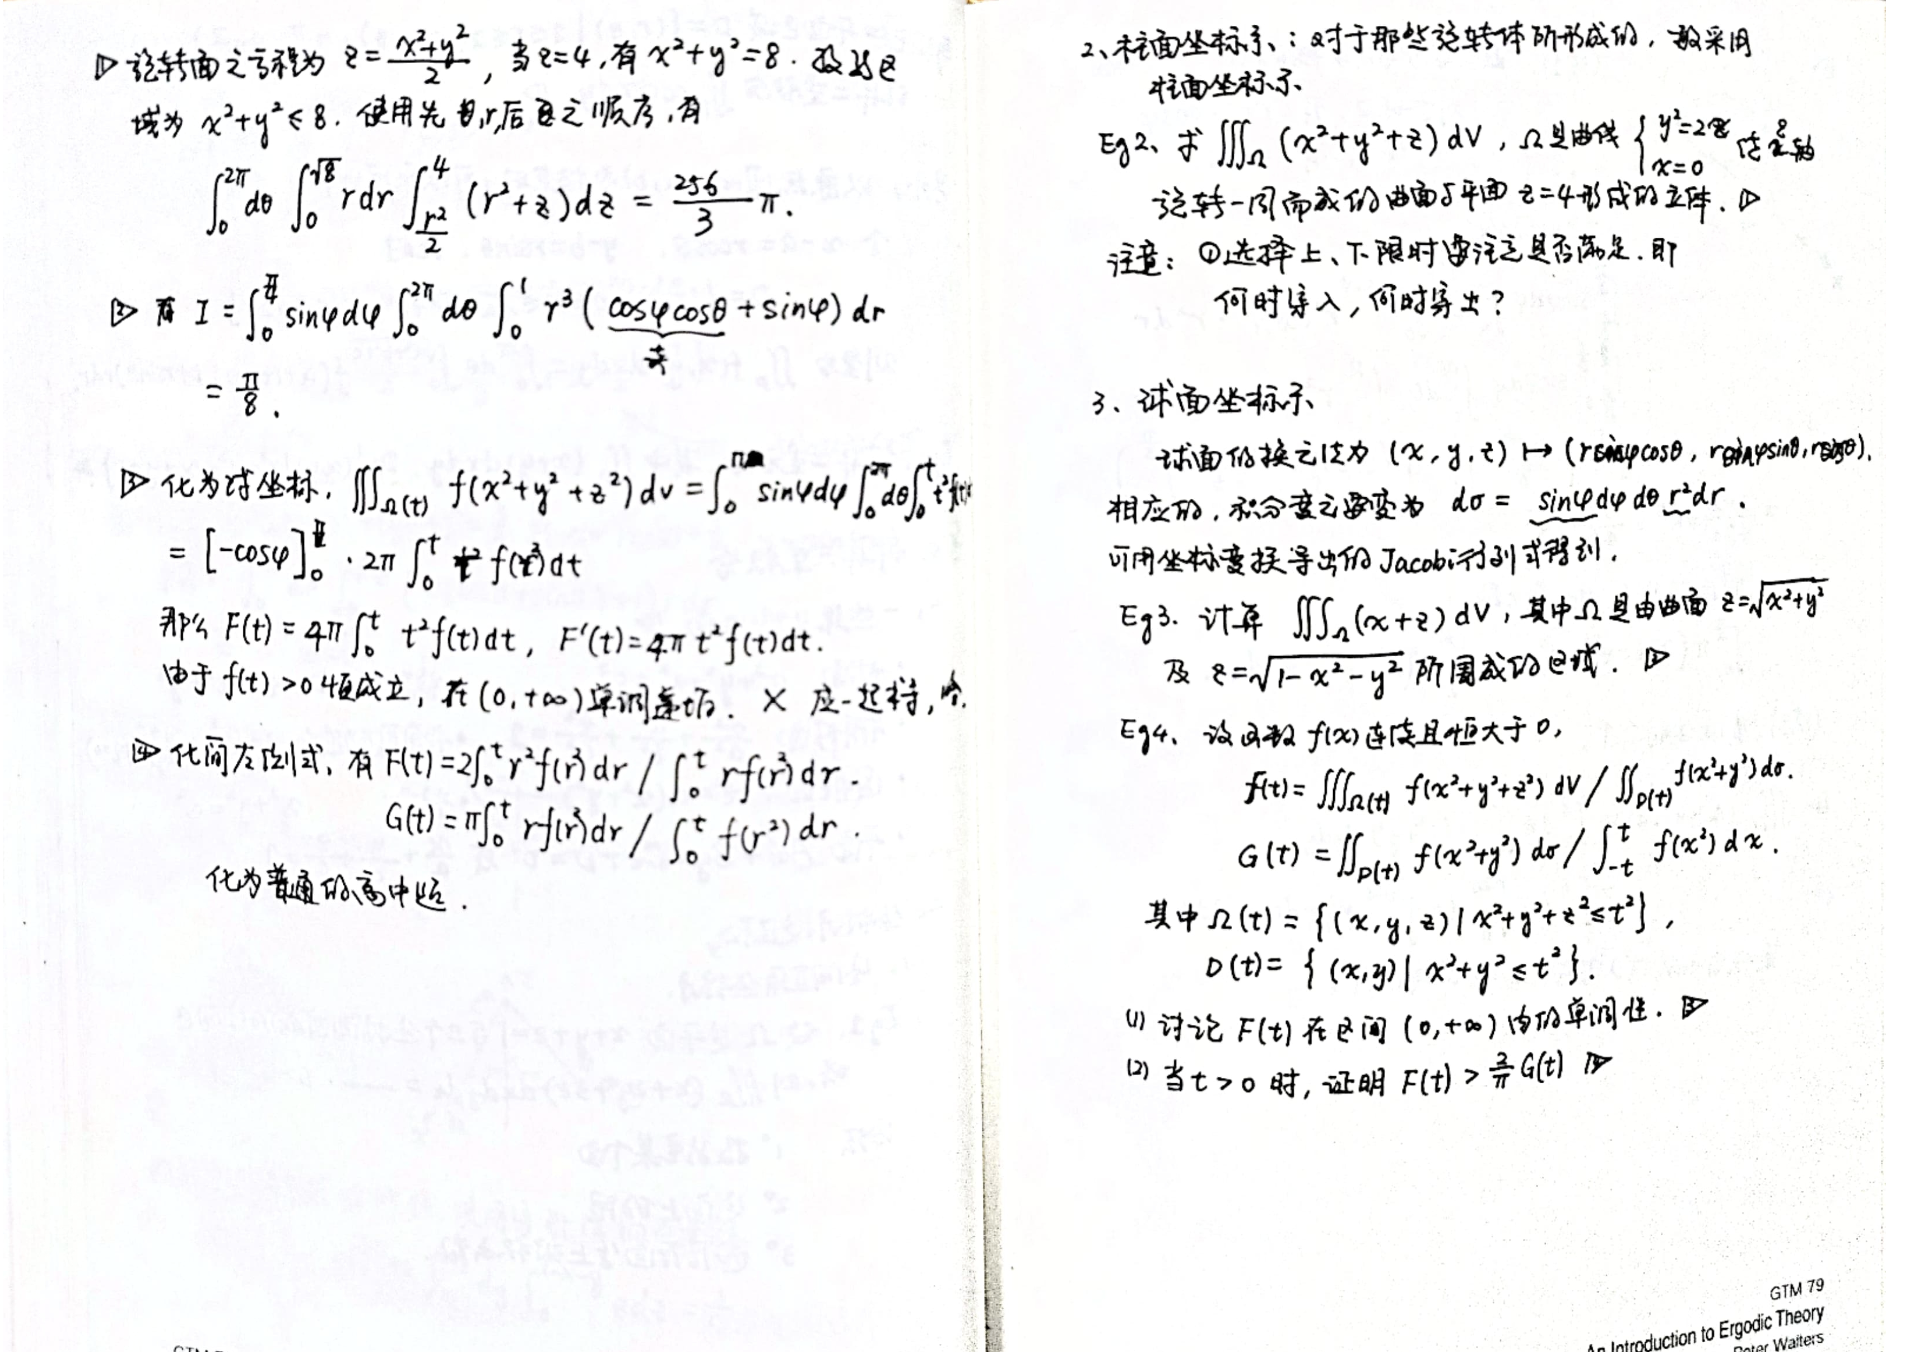 ▷ 旋转面之方程为 z = (x²+y²)/2, 当z=4, 有 x²+y²=8. 投影区
域为 x²+y² ≤ 8. 使用先 θ,r,后 z之顺序,有
∫₀^{2π} dθ ∫₀^{√8} r dr ∫_{r²/2}^{4} (r²+z) dz = 256/3 π.
② 有 I = ∫₀^{π/4} sinφ dφ ∫₀^{2π} dθ ∫₀^1 r³ (cosφcosθ + sinφ) dr
= π/8.
③ 化为球坐标, ∭_{Ω(t)} f(x²+y²+z²) dv = ∫₀^π sinφ dφ ∫₀^{2π} dθ ∫₀^t t² f(t²)
= [-cosφ]₀^π · 2π ∫₀^t t² f(t²) dt
那么 F(t) = 4π ∫₀^t t² f(t) dt, F'(t) = 4π t² f(t) dt.
由于 f(t) > 0 恒成立, 在 (0, +∞) 单调递增. × 应一起求,
④ 化简左侧式, 有 F(t) = 2∫₀^t r² f(r²) dr / ∫₀^t r f(r²) dr.
G(t) = π∫₀^t r f(r²) dr / ∫₀^t f(r²) dr.
化为普通的高中题.
2、柱面坐标系: 对于那些旋转体所形成的, 一般采用
柱面坐标系
Eg2、求 ∭_Ω (x²+y²+z) dV, Ω是曲线 { y²=2z x=0 绕z轴
旋转一周而成的曲面与平面 z=4形成的立体. ▷
注意: ①选择上、下限时要注意是否满足. 即
何时穿入, 何时穿出?
3、球面坐标系
球面的换元法为 (x, y, z) ↦ (rsinφcosθ, rsinφsinθ, rcosφ).
相应的, 积分变元要变为 dσ = sinφ dφ dθ r² dr.
可用坐标变换导出的Jacobi行列式得到.
Eg3. 计算 ∭_Ω (x+z) dV, 其中Ω是由曲面 z=√(x²+y²)
及 z=√(1-x²-y²) 所围成的区域. ②
Eg4、设函数 f(x) 连续且恒大于 0,
F(t) = ∭_{Ω(t)} f(x²+y²+z²) dV / ∬_{D(t)} f(x²+y²) dσ.
G(t) = ∬_{D(t)} f(x²+y²) dσ / ∫_{-t}^t f(x²) dx.
其中 Ω(t) = {(x, y, z) | x²+y²+z² ≤ t²},
D(t) = {(x,y) | x²+y² ≤ t²}.
(1) 讨论 F(t) 在区间 (0, +∞) 内的单调性. ③
(2) 当 t > 0 时, 证明 F(t) > 2/π G(t) ④
GTM 79
An Introduction to Ergodic Theory
Peter Walters